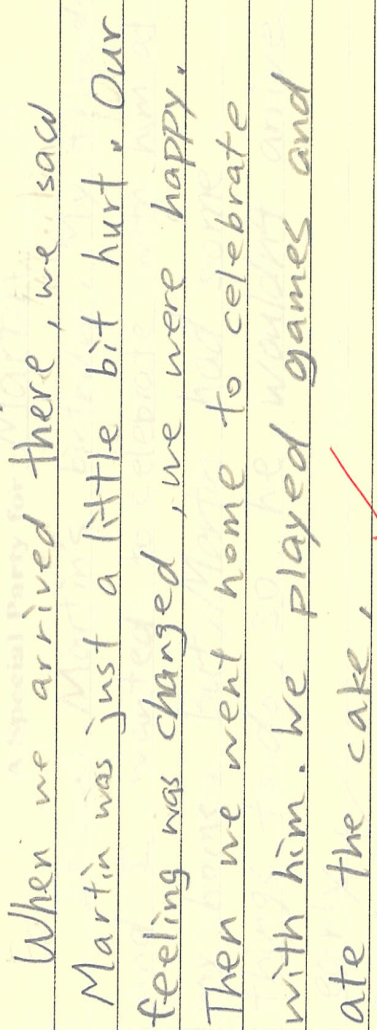 When we arrived there, we saw
Martin was just a little bit hurt. Our
feeling was changed, we were happy.
Then we went home to celebrate
with him. We played games and
ate the cake.